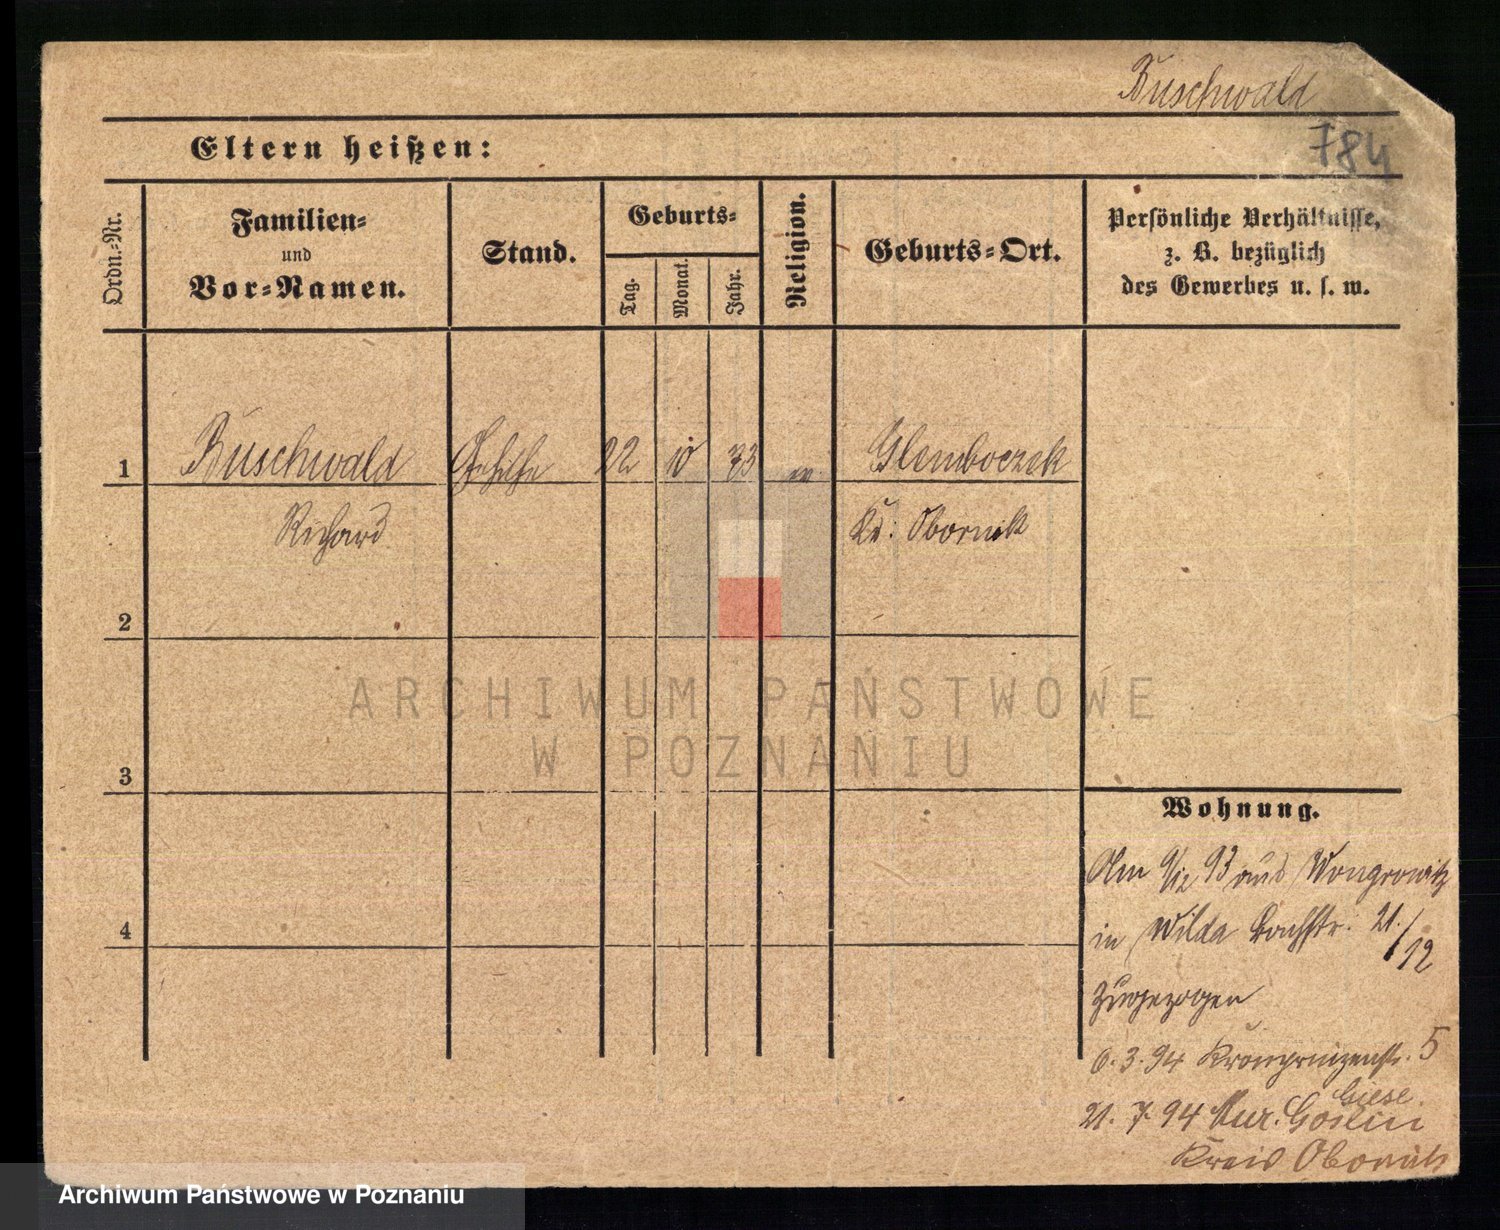 Buschwald
784
Eltern heißen:
Ordn.-Nr.
Familien-
und
Vor-Namen.
Stand.
Geburts-
Tag.
Monat.
Jahr.
Religion.
Geburts-Ort.
Persönliche Verhältnisse,
z. B. bezüglich
des Gewerbes u. s. w.
1 Buschwald Gehilfe 22 10 73 ev. Glemboczek
Richard Kr. Obornik
2
3
4
ARCHIWUM PAŃSTWOWE
W POZNANIU
Wohnung.
Am 9/12 93 aus Wongrowitz
in Wilda Bachstr. 21/12
zugezogen
6.3.94 Kronprinzenstr. 5
Giese.
21. 7. 94 Mur. Goslin
Kreis Obornik
Archiwum Państwowe w Poznaniu